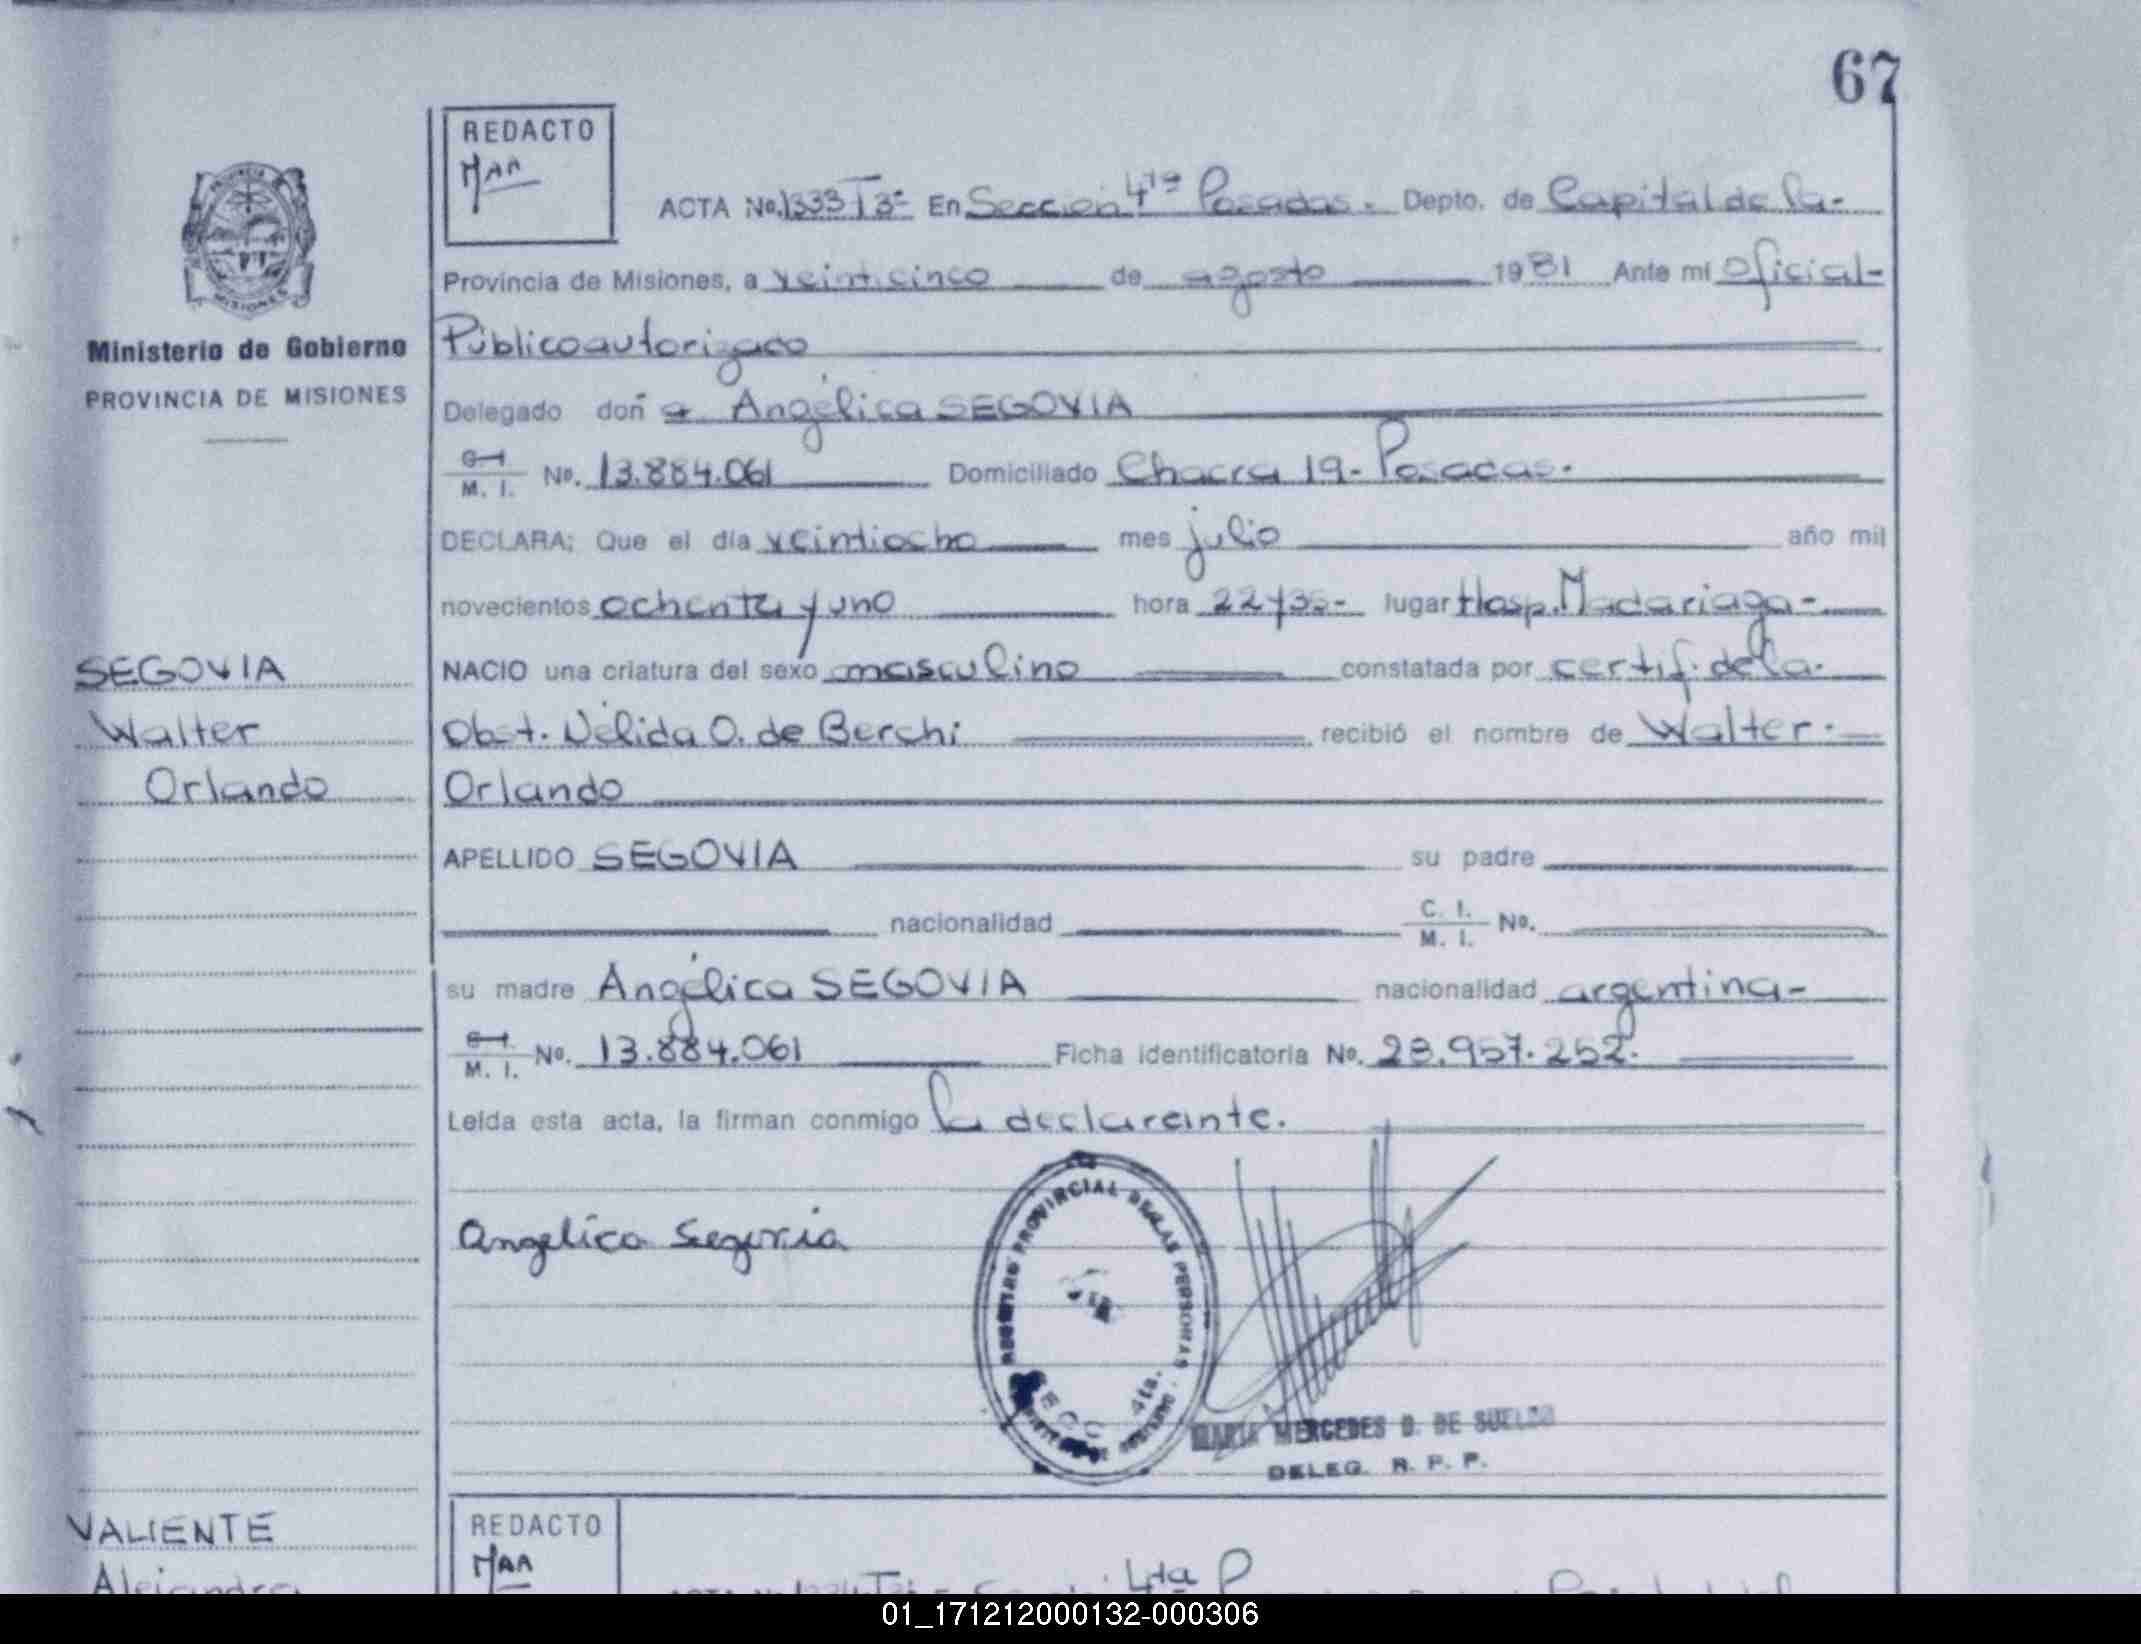 67
REDACTO
MAA
ACTA No. 1333 T3º En Sección 4ta Posadas. Depto. de Capital de la-
Provincia de Misiones, a veinticinco de agosto 1981 Ante mí Oficial-
Público autorizado
Delegado doña Angélica SEGOVIA
C. I. M. I. No. 13.884.061 Domiciliado Chacra 19- Posadas.
DECLARA; Que el día veintiocho mes julio año mil
novecientos ochenta y uno hora 22 y 35- lugar Hosp. Madariaga-
NACIO una criatura del sexo masculino constatada por certif. de la
Obst. Nélida O. de Berchi recibió el nombre de Walter
Orlando
APELLIDO SEGOVIA su padre
nacionalidad C. I. M. I. No.
su madre Angélica SEGOVIA nacionalidad argentina-
C. I. M. I. No. 13.884.061 Ficha identificatoria No. 28.957.252.
Leída esta acta, la firman conmigo la declarante.
Angelica Segovia
REGISTRO PROVINCIAL DE LAS PERSONAS
SECC 4ta.
MARIA MERCEDES D. DE SUELDO
DELEG. R. P. P.
PROVINCIA
MISIONES
Ministerio de Gobierno
PROVINCIA DE MISIONES
SEGOVIA
Walter
Orlando
VALIENTE
Alejandra
REDACTO
MAA
4ta P
01_171212000132-000306